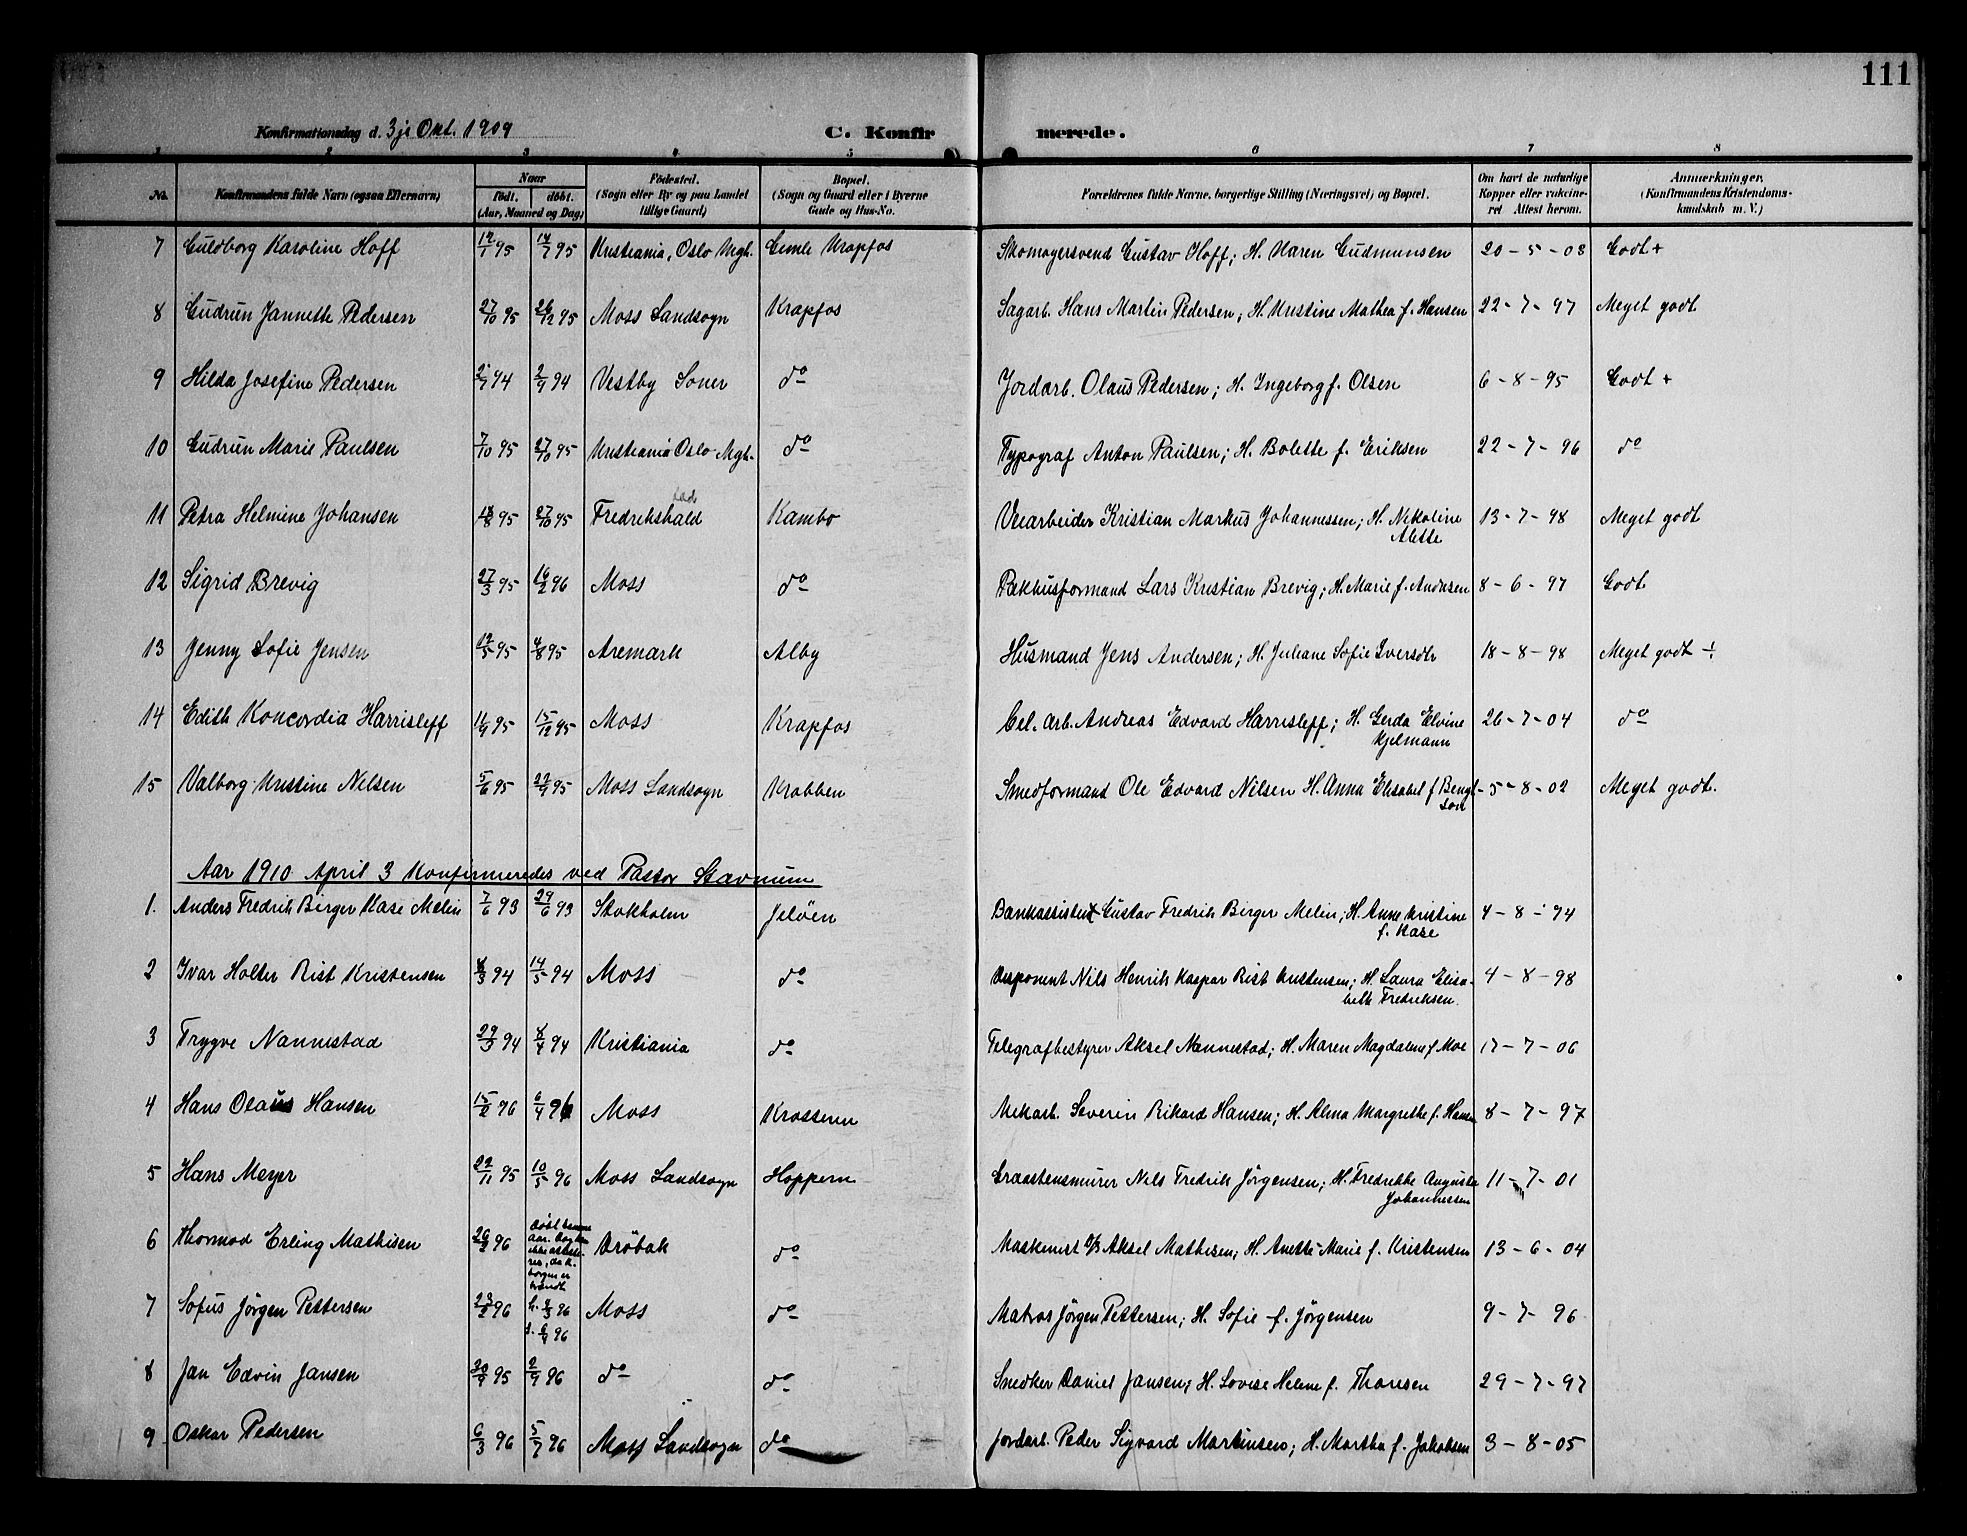 111
Konfirmationsdag d. 3je Okt. 1909 C. Konfirmerede.
1 2 3 4 5 6 7 8
No. Konfirmandens fulde Navn (ogsaa Efternavn) Naar født. døbt. (Aar, Maaned og Dag) Fødested. (Sogn eller By og paa Landet tillige Gaard) Bopæl. (Sogn og Gaard eller i Byerne Gade og Hus-No. Forældrenes fulde Navne, borgerlige Stilling (Næringsvei) og Bopæl. Om havt de naturlige Kopper eller vaccineret Attest herom. Anmærkninger. (Konfirmandens Kristendomskundskab m. V.)
7 Guldborg Karoline Hoff 95 14/7 95 Kristiania, Oslo Mgh. Gimle Krapfos Skomagersvend Gustav Hoff; H. Karen Gudmunsen 20-5-08 Godt +
8 Gudrun Janneth Pedersen 27/10 95 26/12 95 Moss Landsogn Krapfos Sagarb. Hans Martin Pedersen; H. Kristine Mathea f. Hansen 22-7-97 Meget godt
9 Hilda Josefine Pedersen 94 2/9 94 Vestby Soner do Jordarb. Olaus Pedersen; H. Ingeborg f. Olsen 6-8-95 Godt +
10 Gudrun Marie Paulsen 7/10 95 27/10 95 Kristiania Oslo Mgh. do Typograf Anton Paulsen; H. Bolette f. Eriksen 22-7-96 do
11 Petra Helmine Johansen 95 27/10 95 Fredrikshald stad Kambo Veiarbeider Kristian Markus Johannessen; H. Nikoline Alette 13-7-98 Meget godt
12 Sigrid Brevig 27/3 95 16/2 96 Moss do Pakhusformand Lars Kristian Brevig; H. Marie f. Andresen 8-6-97 Godt
13 Jenny Sofie Jensen 12/5 95 4/8 95 Aremark Alby Husmand Jens Andersen; H. Juliane Sofie Iversdtr 18-8-98 Meget godt ÷
14 Edith Koncordia Harrisleff 11/9 95 15/12 95 Moss Krapfos Cel. arb. Andreas Edvard Harrisleff; H. Gerda Elvine Kjelmann 26-7-04 do
15 Valborg Kristine Nilsen 5/6 95 22/9 95 Moss Landsogn Krabben Smedformand Ole Edvard Nilsen H. Anna Elisabet f Bengtson 5-8-02 Meget godt.
Aar 1910 April 3 Konfirmeredes ved Pastor Stavnum
1. Anders Fredrik Birger Kase Melin 7/6 93 29/6 93 Stokholm Jeløen Bankassistent Gustav Fredrik Birger Melin; H. Anne Kristine f. Kase 4-8-94
2 Ivar Holter Rist Kristensen 8/3 94 14/5 94 Moss do Disponent Nils Henrik Kaspar Rist Kristensen; H. Laura Elisabeth Fredriksen. 4-8-98
3 Trygve Nannestad 94 8/4 94 Kristiania do Telegrafbestyrer Aksel Nannestad; H. Maren Magdalene f Moe 17-7-06
4 Hans Olaus Hansen 15/2 96 6/4 96 Moss Krosseren Mekarb. Severin Rikard Hansen; H. Alma Margrethe f. Hansen 8-7-97
5 Hans Meyer 22/11 95 10/5 96 Moss Landsogn Hoppern Graastensmurer Nils Fredrik Jørgensen; H. Fredrikke Auguste Johannessen 11-7-01
6 Thormod Erling Mathisen 26/2 96 døbt samme aar. brændt Drøbak do Maskinist D/S Aksel Mathisen; H. Anette Marie f. Kristensen 13-6-04
7 Sofus Jörgen Pettersen 23/2 96 h. 2/3 96 f. 6/4 96 Moss do Matros Jörgen Pettersen; H. Sofie f. Jörgensen 9-7-96
8 Jan Edvin Jansen 95 2/9 96 do do Snedker Daniel Jansen; H. Lovise Helene f. Thoresen 29-7-97
9 Oskar Pedersen 6/3 96 5/7 96 Moss Landsogn do Jordarb. Peder Sigvard Martinsen; H. Martha f. Jakobsen 3-8-05